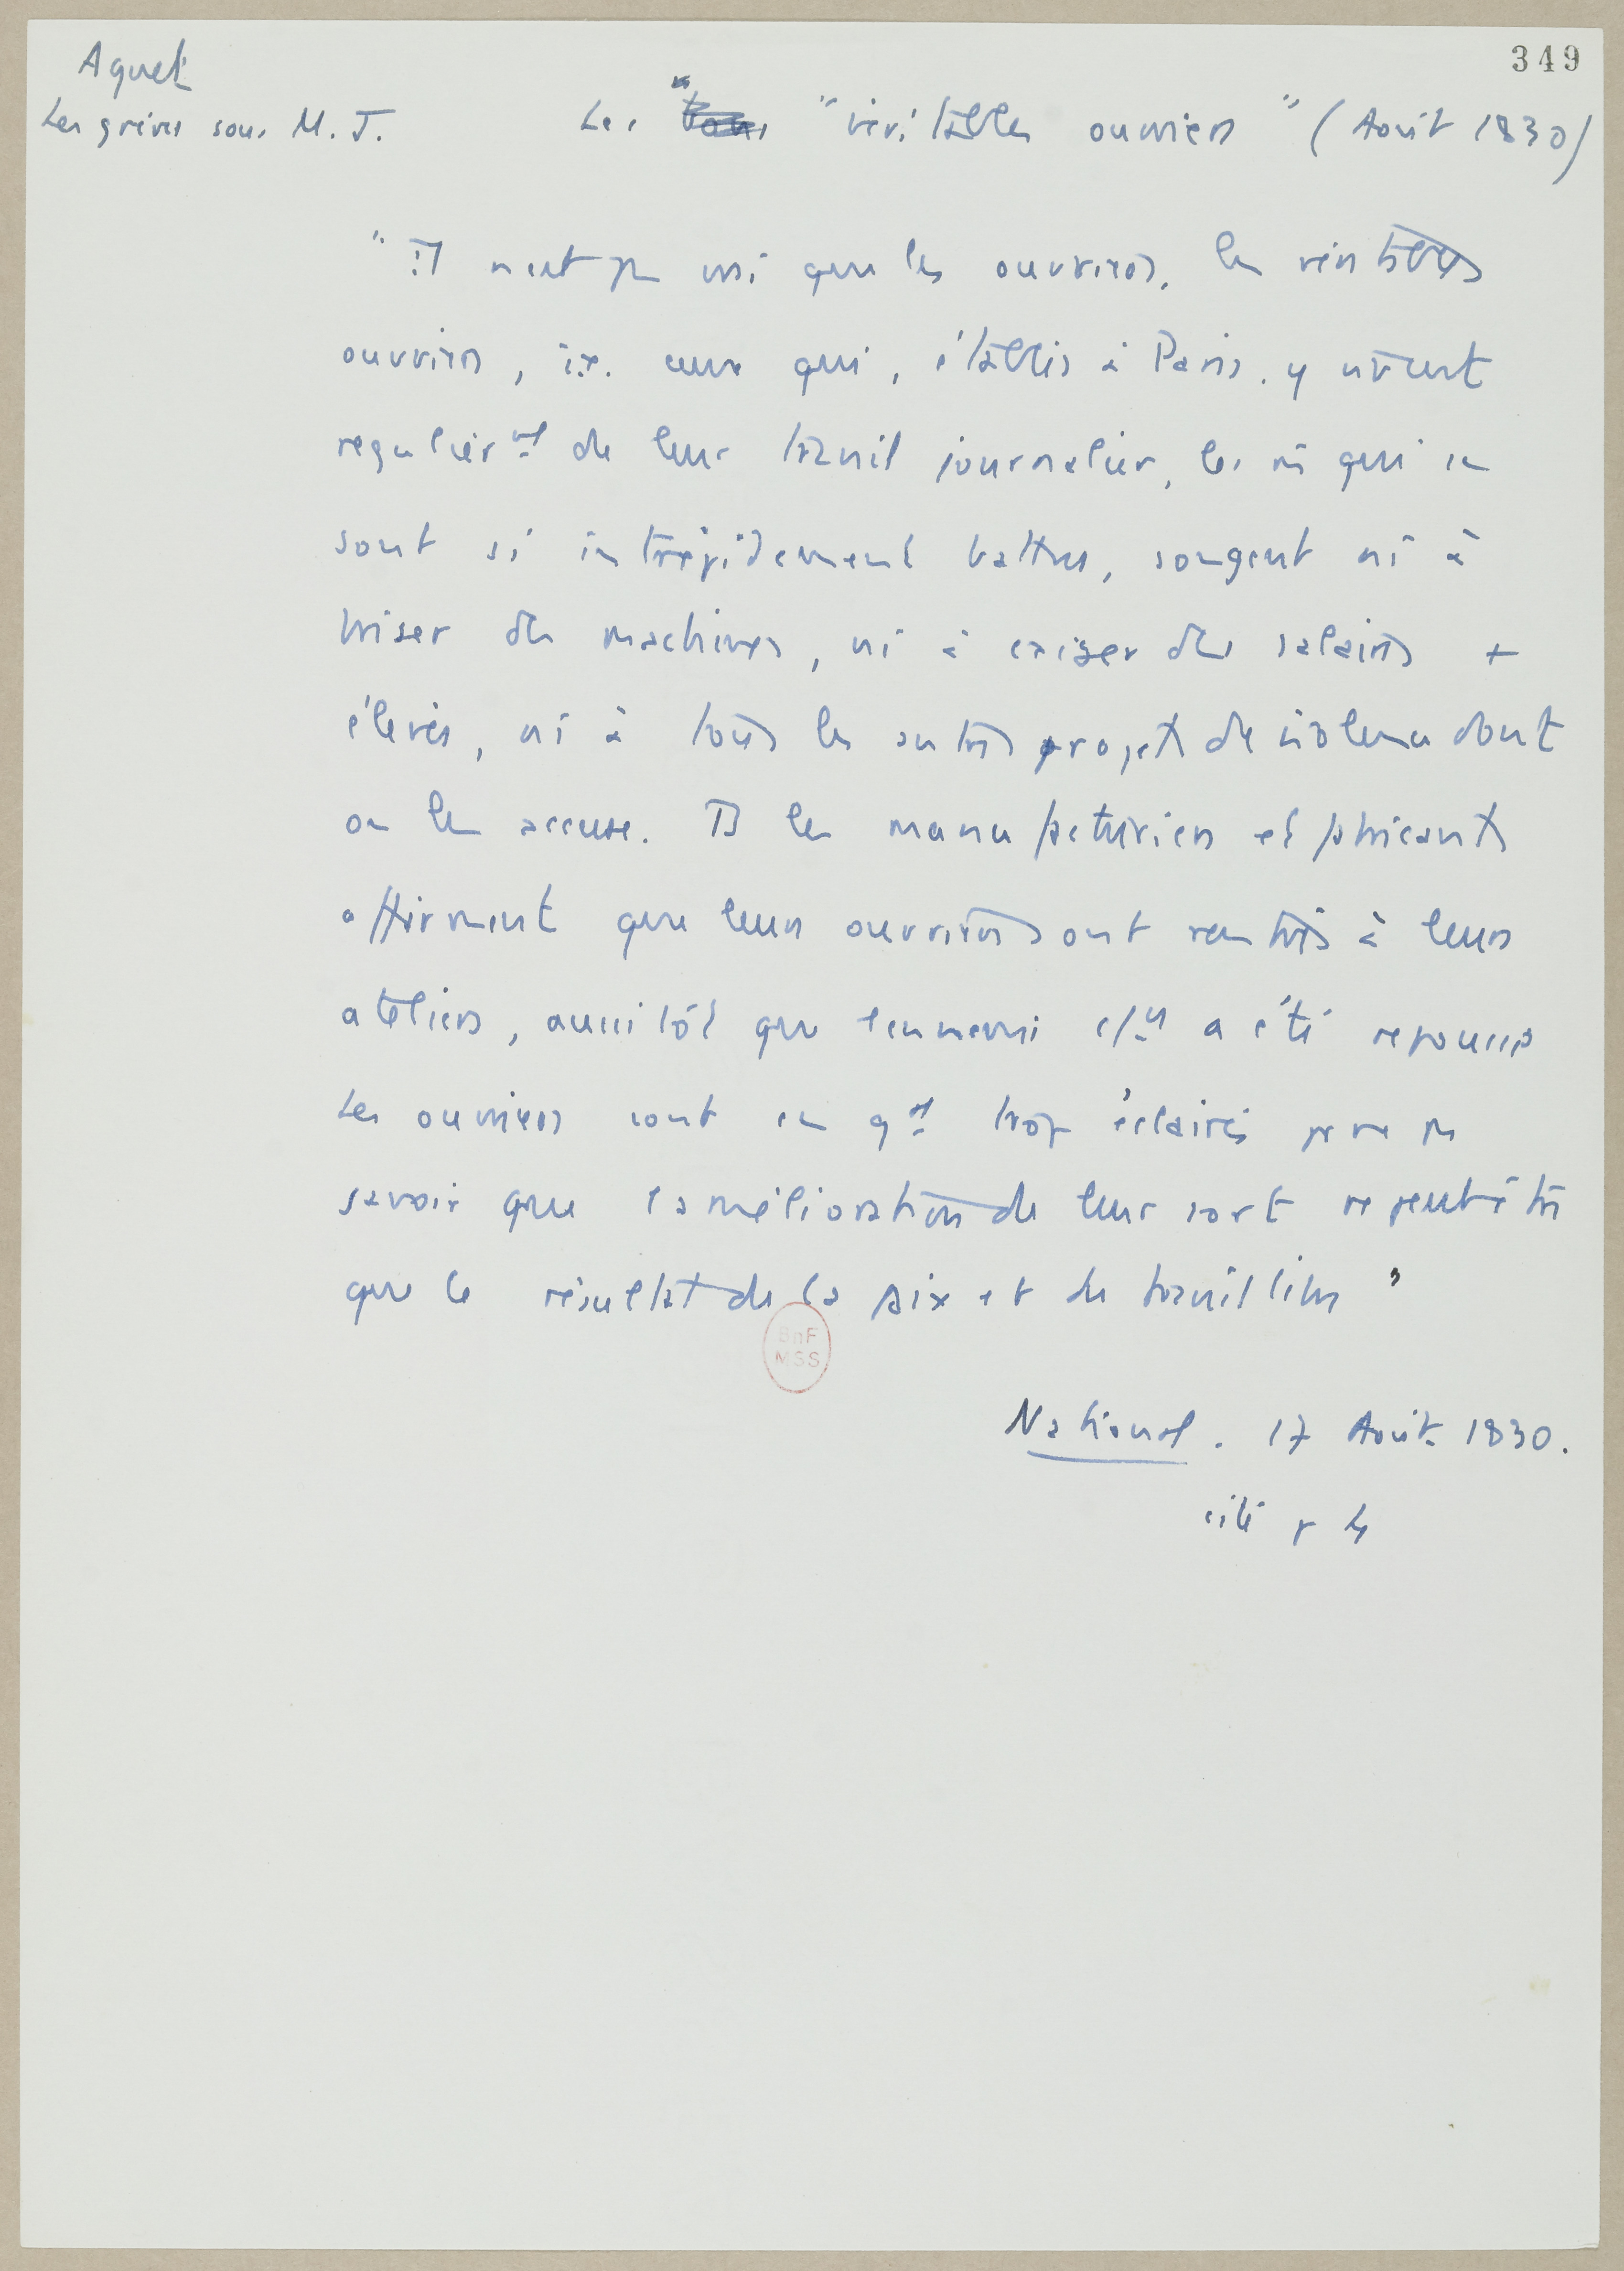 349
Aguet
Les grèves sous M. J.
Les "véritables ouvriers" (Août 1830)
"Il n'est pas vrai que les ouvriers, les véritables
ouvriers, i.e. ceux qui, établis à Paris, y vivent
régulièrmt de leur travail journalier, les qui se
sont si intrépidement battus, songent ni à
briser des machines, ni à exiger des salaires +
élevés, ni à tous les autres projets de violence dont
on les accuse. Ts les manufacturiers et fabricants
affirment que leurs ouvriers sont rentrés à leurs
ateliers, aussitôt que l'ennemi a été repoussé
Les ouvriers sont en gal trop éclairés pr ne pas
savoir que l'amélioration de leur sort ne peut être
que le résultat de la paix et du travail libre"
BnF
MSS
National. 17 Août 1830.
cité